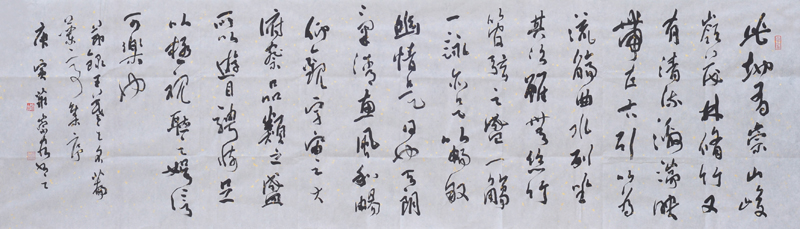 此地有崇山峻
嶺茂林脩竹又
有清流激湍映
帶左右引以為
流觴曲水列坐
其次雖無絲竹
管弦之盛一觴
一詠亦足以暢敘
幽情是日也天朗
氣清惠風和暢
仰觀宇宙之大
俯察品類之盛
所以遊目騁懷足
以極視聽之娛信
可樂也
節錄王羲之名篇
蘭亭集序
庚寅